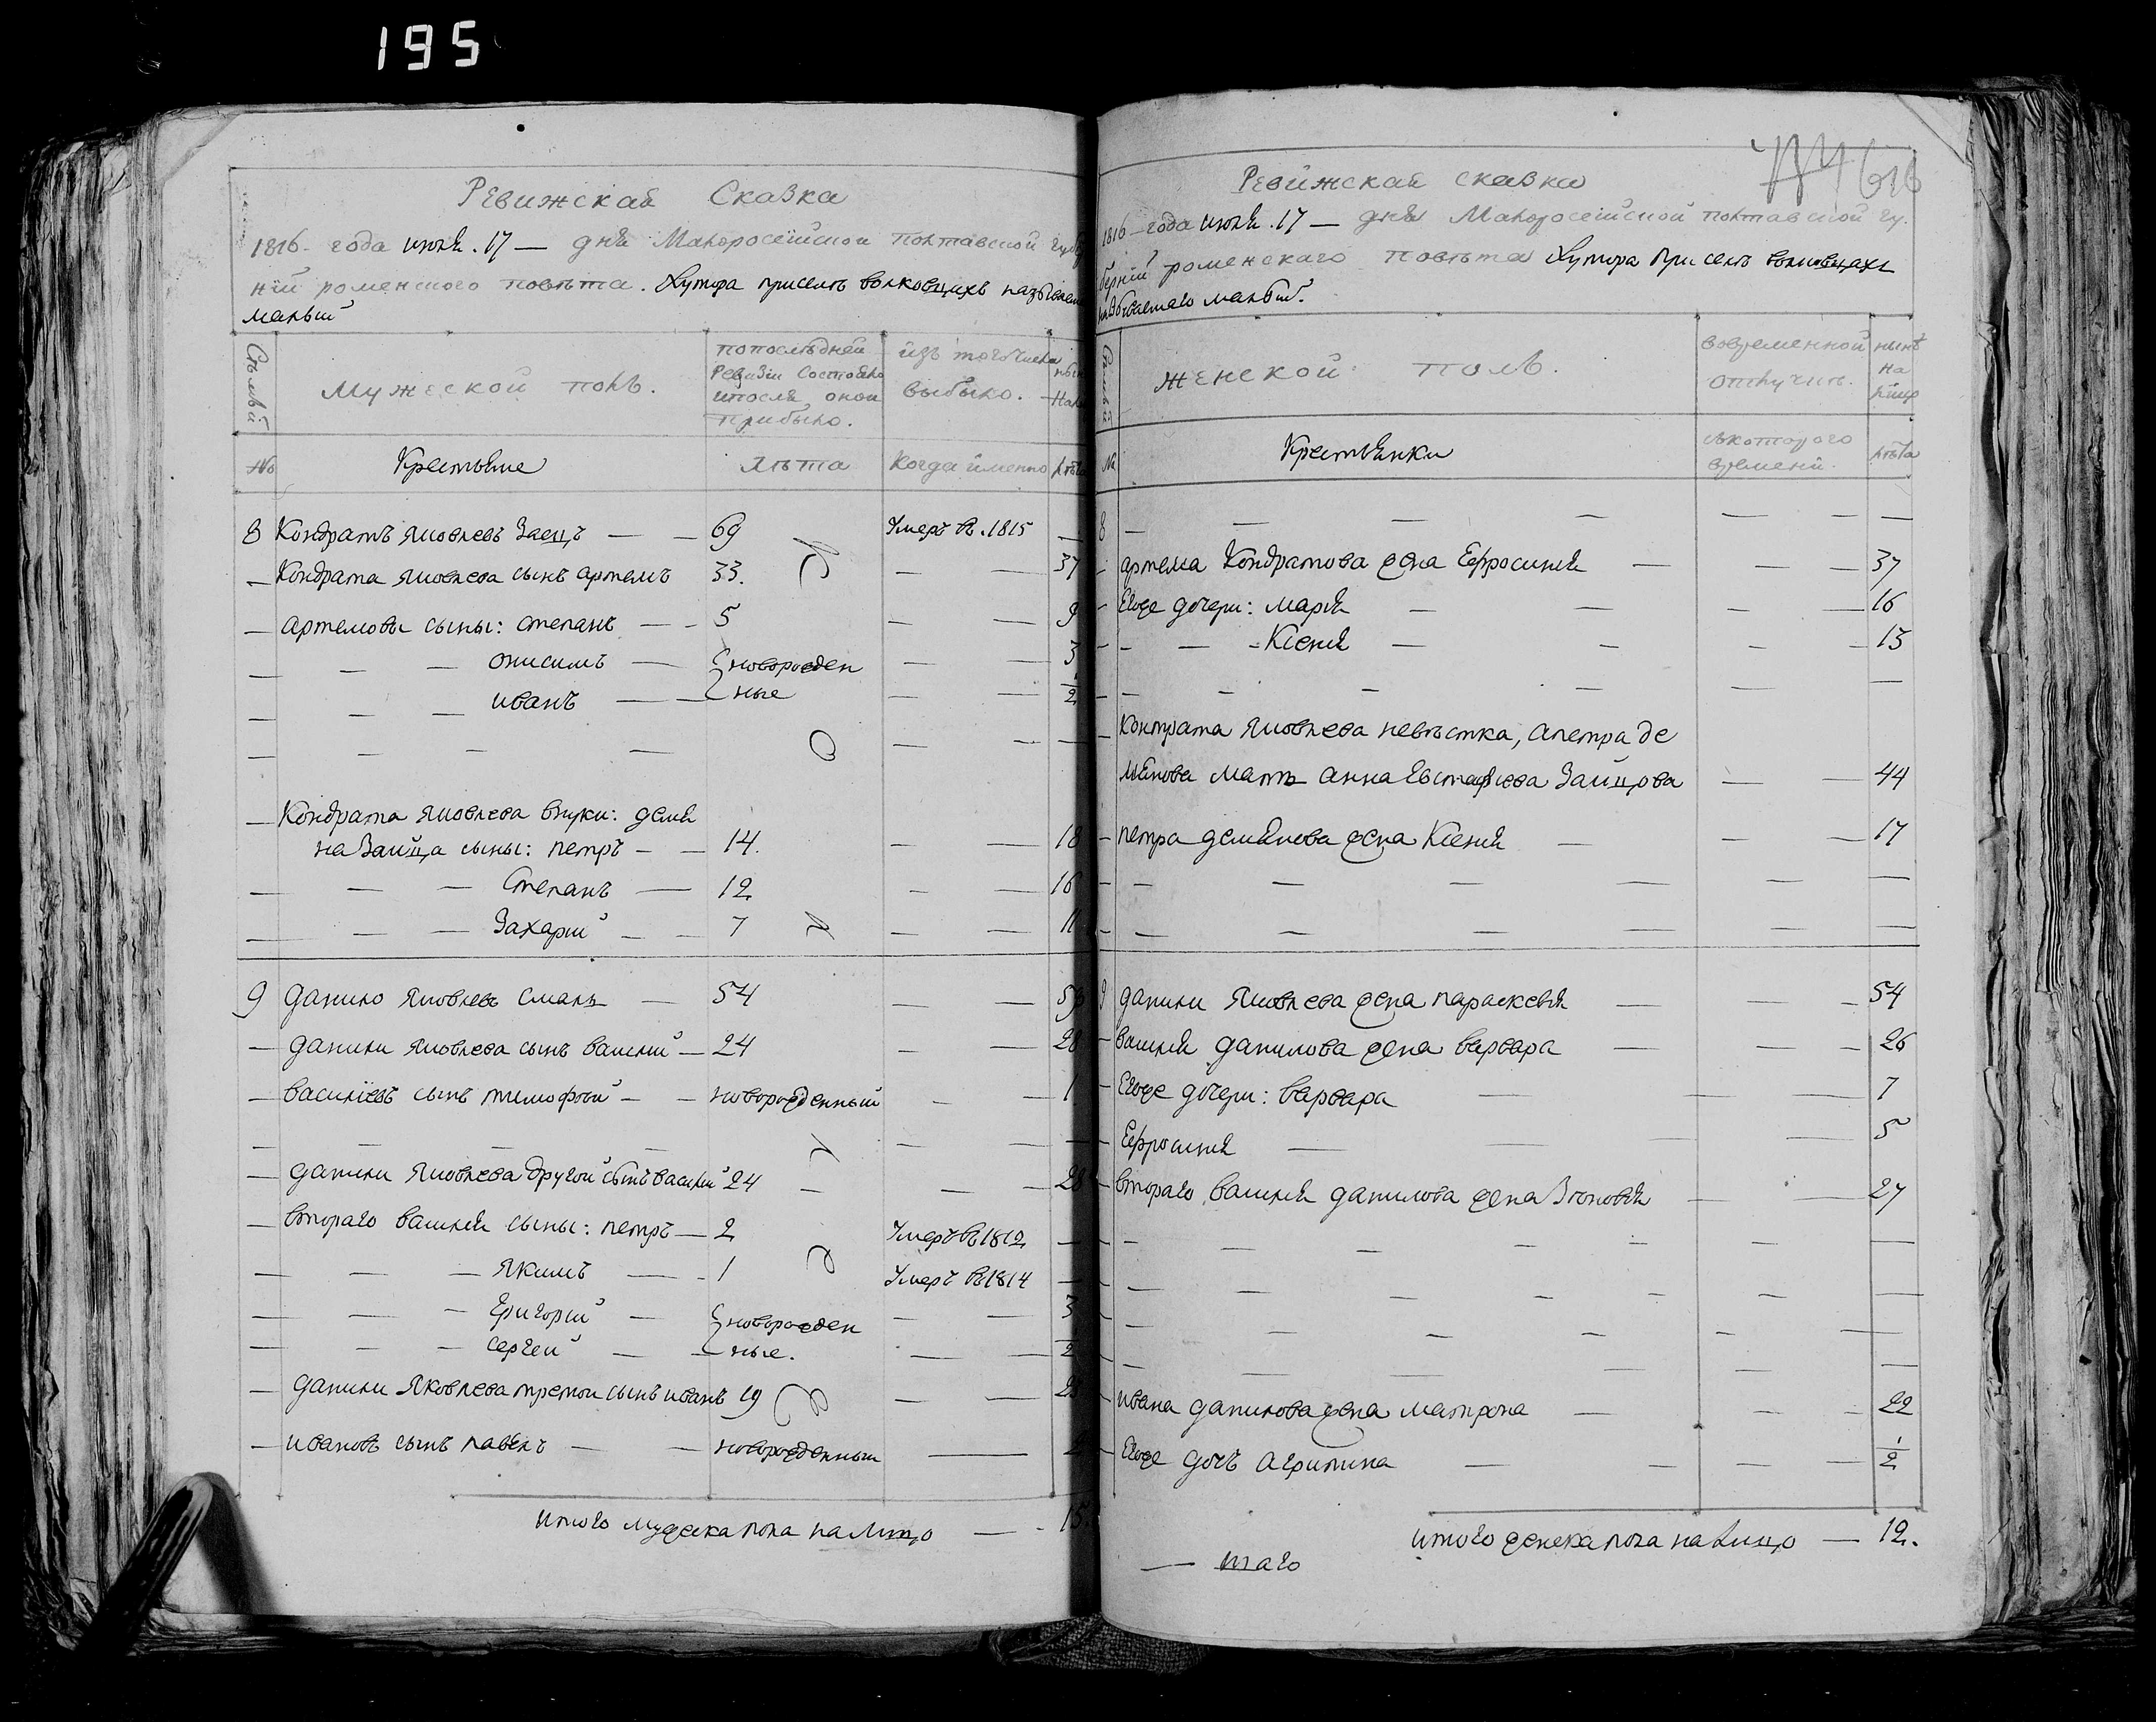 195
Ревижскай Сказка
1816- года июля .17 — дня Малоросейской полтавской губер
ний роменского повѣта. Хутора присело волковцахъ называем
малый
Семьй
мужеской полъ.
попослѣдней
Ревизіи состояло
ипосля оной
прибыло.
изъ того числа
выбыло.
№
Крестьяне
лѣта
когда именно
лѣта
8 Кондратъ Яковлевъ Заецъ — — 69 Умеръ въ .1815 —
— Кондрата Яковлева сынъ артемъ 33. — — 37
— артемовы сыны: степанъ — - 5 — — 9
— — — онисимъ — новорожден — — 3
— — — иванъ — — ные — — 1/2
— — — — — — —
— Кондрата Яковлева внуки: демя
на Зайца сыны: петръ - — 14. — — 18
— — — Степанъ — 12 — — 16
— — — Захарий — — 7 — — 11
9 данило Яковлевъ смаль — 54 — — 58
— данили Яковлева сынъ василий — 24 — — 28
— василіевъ сынъ тимофей — — новорожденный — — 1
— — — — — — —
— данили Яковлева другой сынъ василий 24 — — — 28
— втораго василия сыны: петръ — 2 Умеръ въ 1812 —
— — — Якимъ — - 1 Умеръ въ 1814 —
— — — Григорий — новорожден — — 3
— — — сергей — — ные. — — 1/2
— данили Яковлева третой сынъ иванъ 19 — — 23
— ивановъ сынъ павелъ — — новорожденный —
итого мужеска пола налицо — - 15
616
Ревижская сказка
1816 - года июля .17 — дня Малоросейской полтавской гу.
берній роменскаго повѣта Хутора присело волковцахъ
называемаго малый.
Семьй
женской полъ.
вовременной
отлучки.
нынѣ
на
лице
№
Крестьянки
съкоторого
времени.
лѣта
8 — — — — — — —
- артема Кондратова жена Ефросиния — — — 37
- Егоже дочери: мария — — — — 16
- - — - Ксения — — — - 13
— — — — — — — —
— Кондрата Яковлева невѣстка, апетра де
мянова мать анна Евстафиева Зайцова — — 44
— петра демянова жена Ксения — — — 17
— — — — — — —
- — — — — — —
9 данили Яковлева жена параскевия — — — 54
— василия данилова жена варвара — — — 26
- Егоже дочери: варвара — — — 7
— Ефросиния — — — — 5
— втораго василия данилова жена Зеновия — — 27
— — — — — — — —
— — — — — — — —
— — — — — — —
— — — — — —
— ивана данилова жена матрона — — — 22
— Егоже дочь агрипина — — — — 1/2
итого женска пола налицо — 12.
— таго